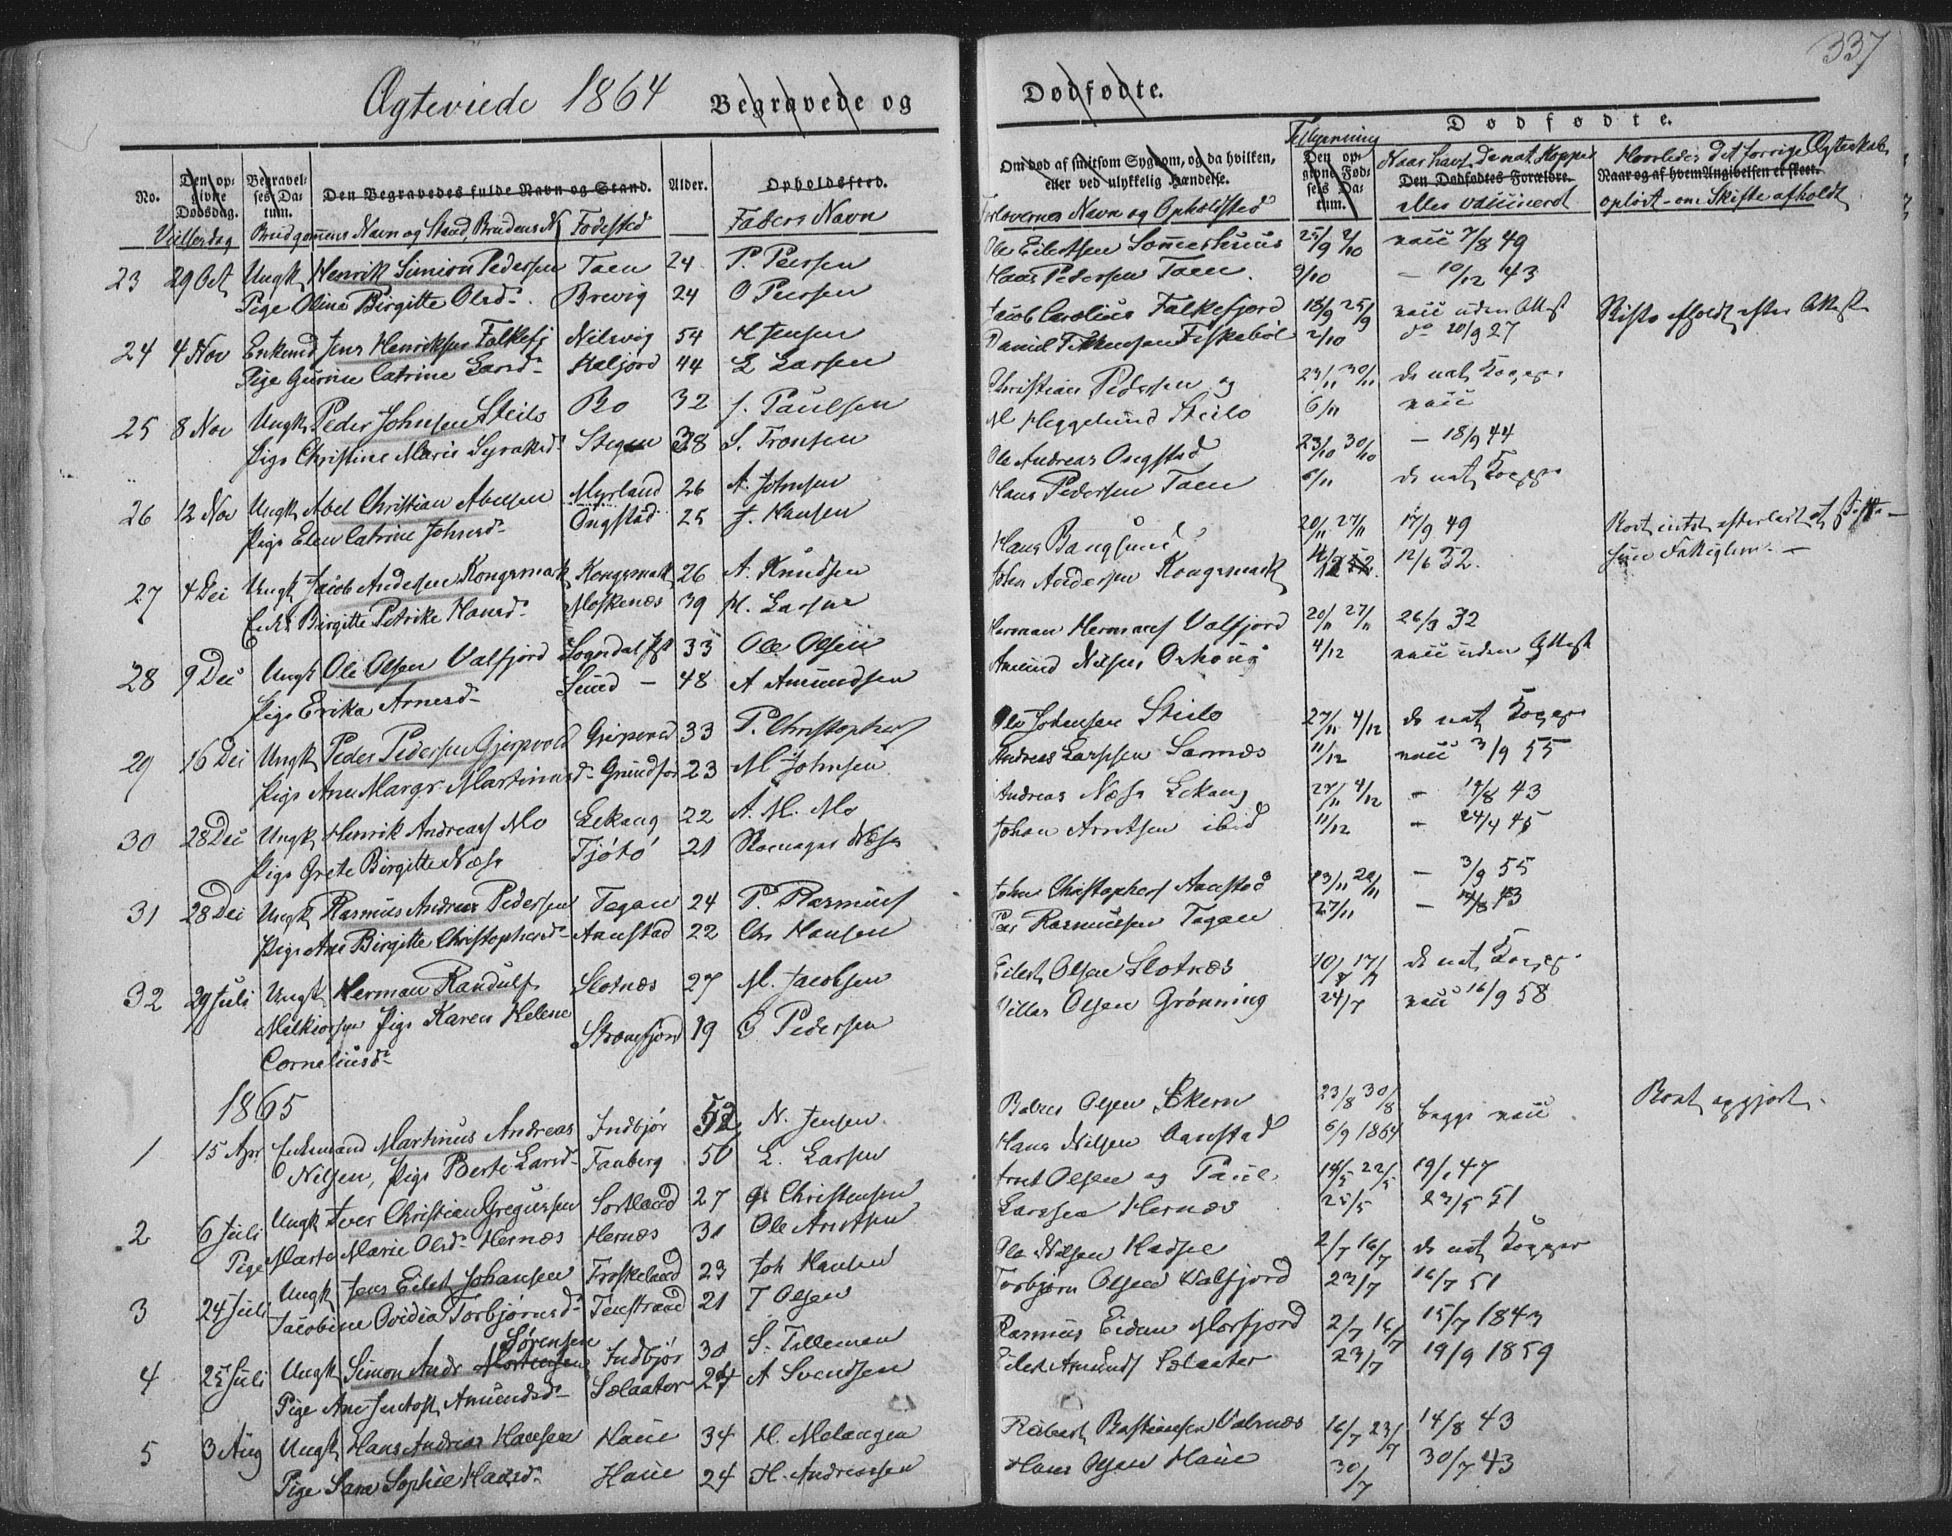 337
Ægteviede 1864 Begravede og
Dødfødte.
No.
Den opgivne Dødsdag.
Begravelses Datum.
Den Begravedes fulde Navn og Stand.
Alder.
Opholdssted.
Vielsesdag Brudgommens Navn og Stand, Brudens N Fødested
Faders Navn
23 29 Oct Ungk Henrik Simion Pedersen Taen 24 P. Peersen
Pige Oline Birgitte Olsd. Brevig 24 O Peersen
24 4 Nov Enkemd Jens Henriksen Falkefj Nilsvig 54 H Jensen
Pige Gurine Catrine Larsd Kaljord 44 L Larsen
25 8 Nov Ungk Peder Johnsen Steilo Bo 32 J. Paulsen
Pige Christine Marie Syraksd Stegen 38 S. Tronsen
26 12 Nov Ungk Abel Christian Abelsen Myrland 26 A. Johnsen
Pige Elen Catrine Johnsd Ongstad 25 J. Hansen
27 4 Dec Ungk Jacob Andersen Kongsmark Kongsmark 26 A. Knudsen
Enke Birgitte Petrike Hansd Moskenæs 39 H. Larsen
28 9 Dec Ungk Ole Olsen Valfjord Sogndal 33 Ole Olsen
Pige Erika Arnesd Sund — 48 A Amundsen
29 16 Dec Ungk Peder Pedersen Gjerpvold Gjerpvold 33 P. Christophers
Pige Ane Margr Martinusd Grundfør 23 M Johnsen
30 28 Dec Ungk Henrik Andreas Mo Lekang 22 A. M. Mo
Pige Grete Birgitte Næss Tjøtø 21 Næss
31 28 Dec Ungk Rasmus Andreas Pedersen Tegan 24 P. Rasmus
Pige Ane Birgitte Christophersd Aanstad 22 Chr Hansen
32 29 Juli Ungk Herman Randulf Slotnæs 27 M. Jacobsen
Melkiorsen Pige Karen Helene Straumfjord 19 C Pedersen
Corneliusd
1865
1 15 Apr Enkemand Martinus Andreas Indbjør 52 N. Jensen
Nilsen, Pige Berte Larsd Fauberg 50 L. Larsen
2 6 Juli Ungk Iver Christian Gregusen Sortland 27 Gr Christensen
Pige Marte Marie Olsd Hernæs Hernæs 31 Ole Arntsen
3 24 Juli Ungk Jens Eilert Johansen Froskeland 23 Joh Hansen
Jacobine Ovidia Torbjørnsd Finstrand 21 T Olsen
Sørensen
4 25 Juli Ungk Simon Andr Mortensen Indbjør 30 S. Tilleman
Pige Ane Amundsd Sælaater 24 A Svendsen
5 3 Aug Ungk Hans Andreas Hansen Haue 34 H. Melangen
Pige Sara Sophie Hansd Haue 24 H. Andreassen
Dødfødte.
Om død af smitsom Sygdom, og da hvilken, eller ved ulykkelig Hændelse.
Den opgivne Fødsels Datum.
Tillysning
Den Dødfødtes Forældre.
Naar og af hvem Angivelsen er skeet.
Forlovernes Navn og Opholdsted
Naar havt de nat Kopper
eller vaccinerd
Hvorledes det forrige Ægteskab
opløst - om Skifte afholdt
Ole Eilertsen Sommerhuus 25/9 2/10 vacc 7/8 49
Hans Pedersen Taen. 9/10 — 10/12 43
Jacob Carolius Falkefjord 18/9 25/9 vacc uden Attest Skifte afholdt efter Attest
Daniel Fiskebøl 2/10 do 20/9 27
Christian Pedersen og 23/11 30/11 de nat Kopper
M Heggelund Steilo 6/11 vacc
Ole Andreas Ongstad 23/10 30/10 — 18/9 44
Hans Pedersen Taen 6/11 de nat Kopper
Hans Bangsund 20/11 27/11 17/9 49
John Andersen Kongsmark 12/6 32.
Herman Hermans Valfjord 20/11 27/11 26/3 32
Amund Nilsen 4/12 vacc uden Attest
Ole Johnsen Steilo 27/11 4/12 de nat Kopper
Andreas Larssen Sarnæs 11/12 vacc 3/9 55
Andreas Næss Lekang 27/11 4/12 — 14/8 43
Johan Arntsen ibid 11/12 — 24/4 45
John Christophers Aanstad 13/11 20/11 — 3/9 55
Peer Rasmussen Tegan 27/11 — 14/8 43
Eilert Olsen Slotnæs 10/7 17/7 de nat Kopper
Villas Olsen Grønning 24/7 vacc 16/9 58
Olsen 23/8 30/8 begge vacc. Boet opgjort.
Hans Nilsen Aanstad 6/9 1864
Arnt Olsen og Paul 14/5 22/5 19/1 47
Larssen Hernæs 25/5 23/5 51
Ole Nilsen Hadsel 2/7 16/7 de nat Kopper
Torbjørn Olsen Valfjord 23/7 16/7 51
Rasmus Morfjord 2/7 16/7 15/7 1843
Eilert Amunds Sælaater 23/7 19/9 1859
Bastiansen Valnæs 16/7 23/7 14/8 43
Hans Olsen Haue 30/7 30/7 43